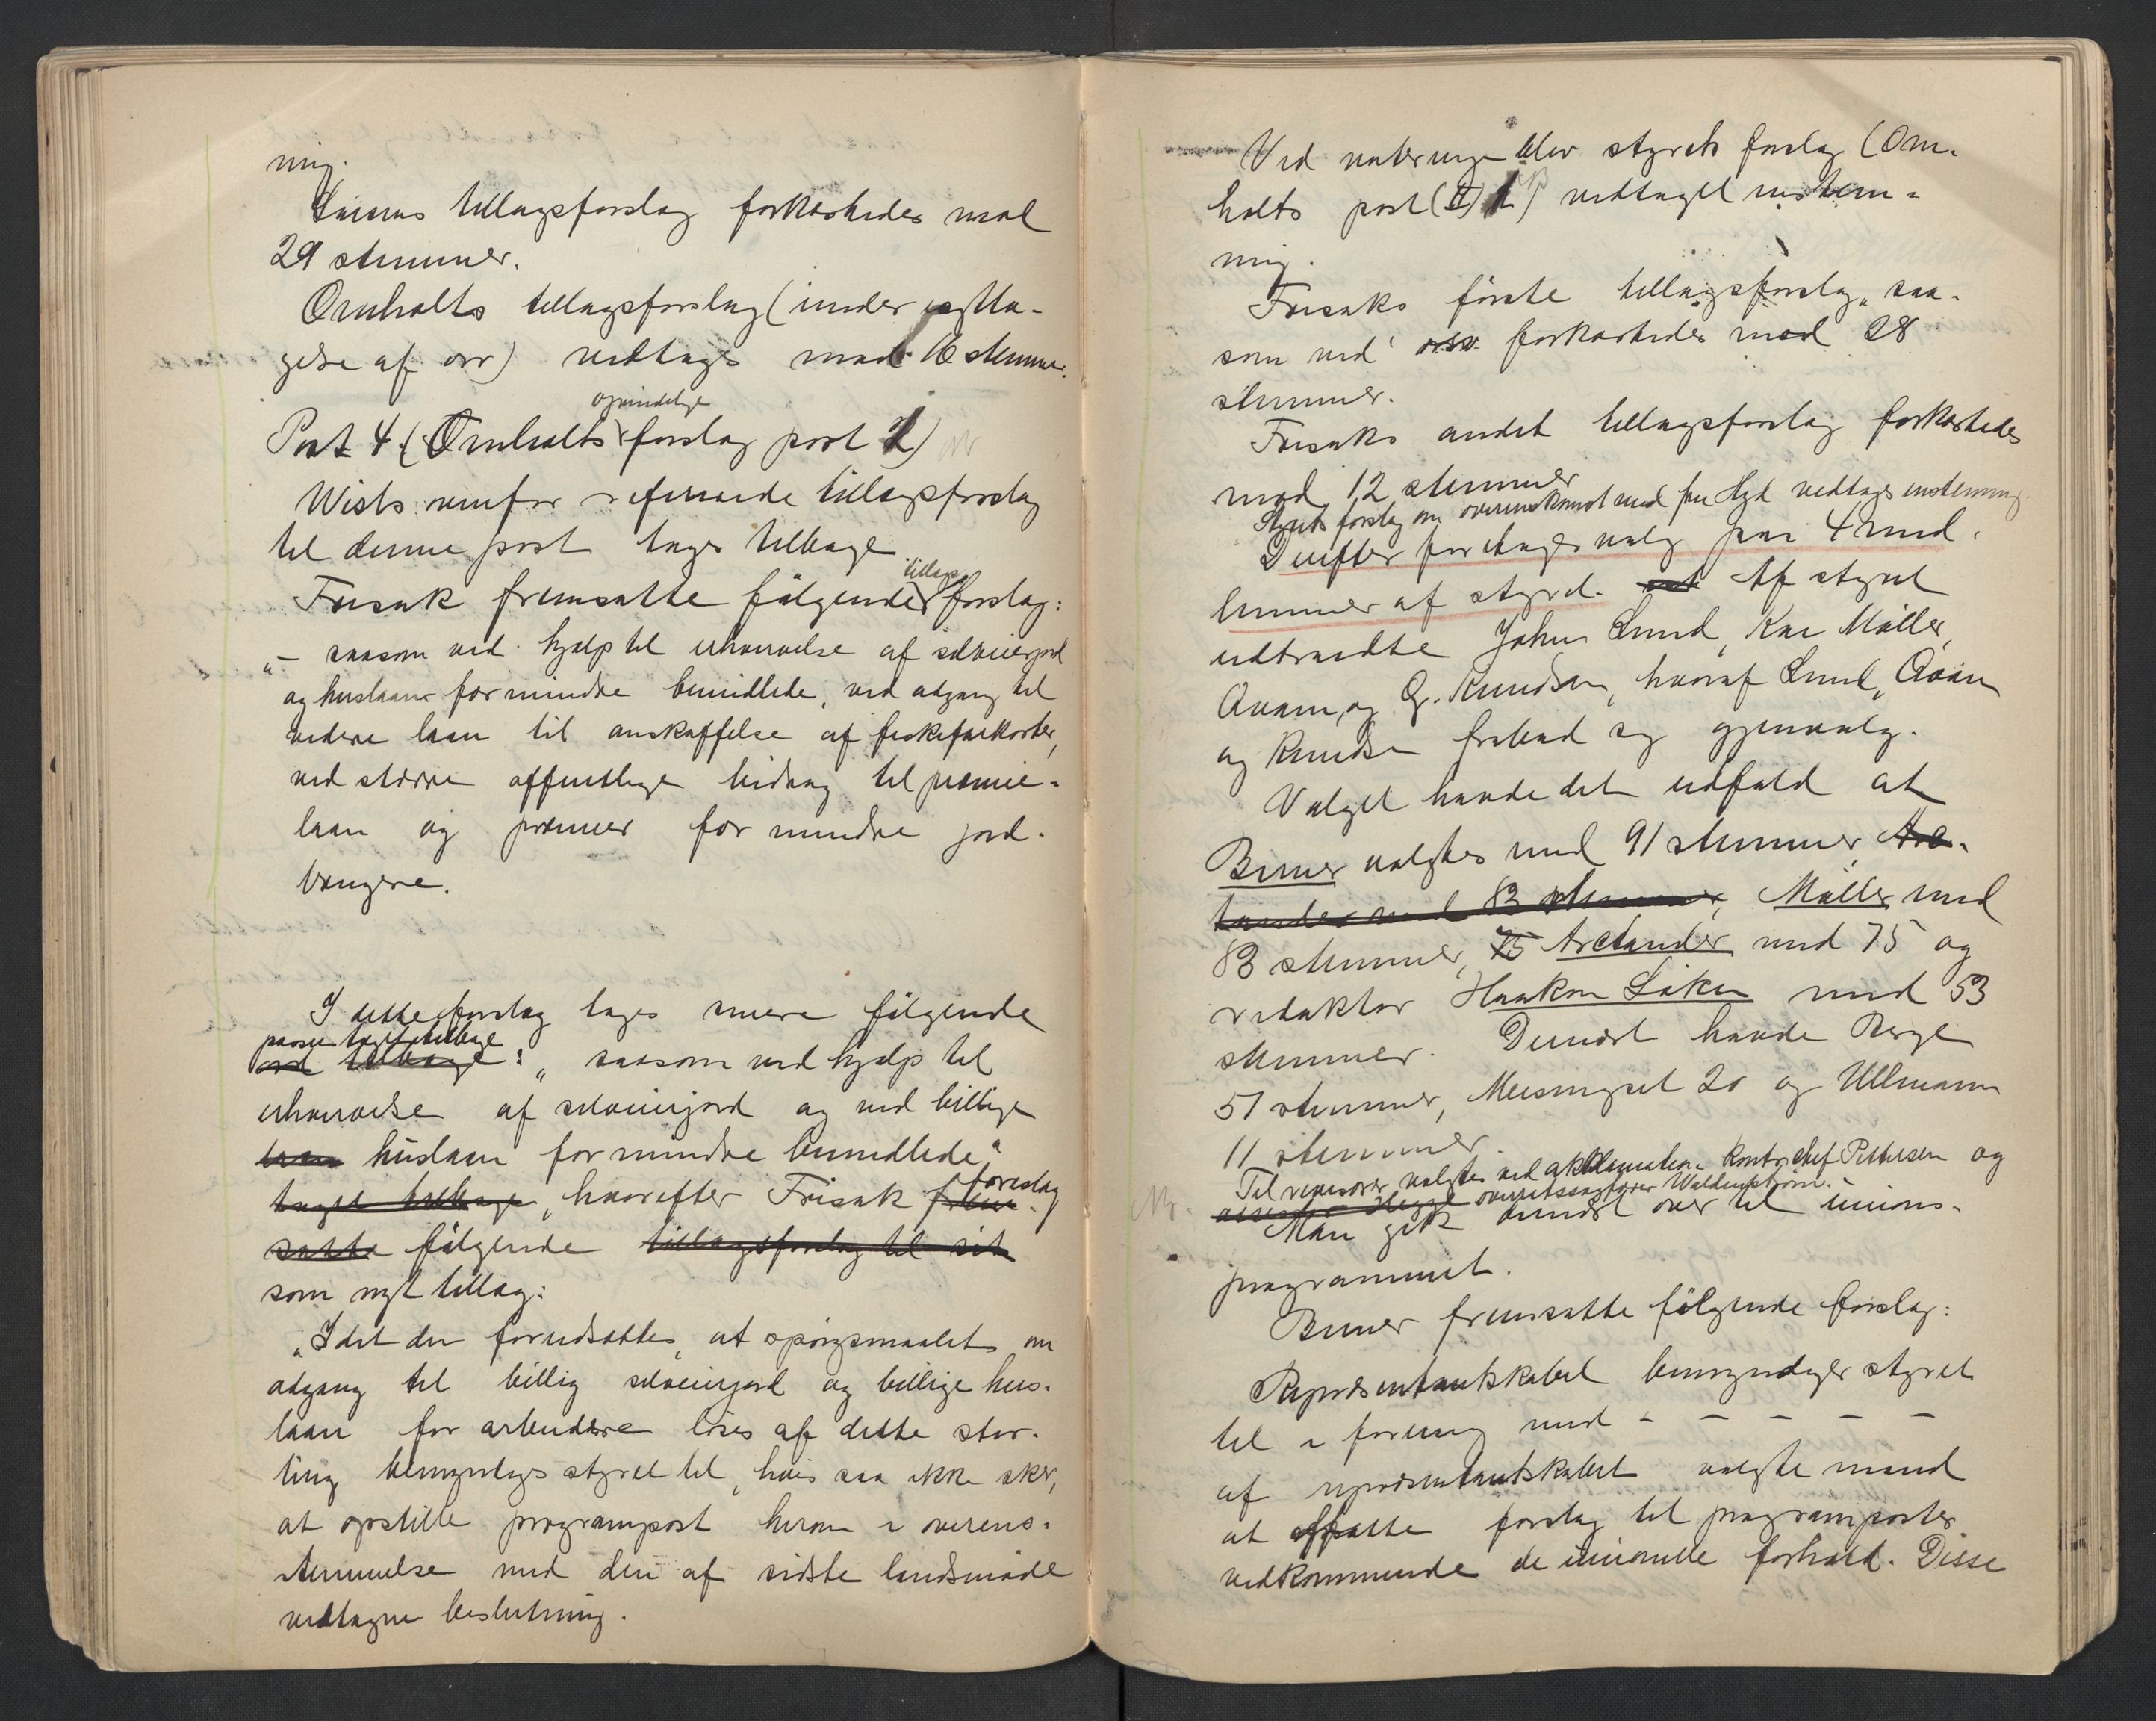 ning.
tillægsforslag forkastedes mod
29 stemmer.
Omholts tillægsforslag (under iagtta-
gelse af osv) vedtages mod 16 stemmer.
oprindelige
Post 4 (Omholts forslag post 2)
Wists ovenfor refererede tillægsforslag
til denne post tages tilbage.
tillægs
Frisak fremsatte følgende forslag:
„– saasom ved hjælp til erhvervelse af selveierjord
og huslaan for mindre bemidlede, ved adgang til
videre laan til anskaffelse af fiskefarkoster,
ved større offentlige bidrag til præmie-
laan og præmier for mindre jord-
brugere.
I dette forslag tages senere følgende
passus tagt tilbage
ord tilbage: „saasom ved hjælp til
erhvervelse af selveierjord og ved billige
laan huslaan for mindre bemidlede“
taget tilbage, hvorefter Frisak frem- foreslog
satte følgende tillægsforslag til sit
som nyt tillæg:
„Idet der forudsættes, at spørgsmaalet om
adgang til billig selveierjord og billige hus-
laan for arbeidere løses af dette stor-
ting bemyndiges styret til, hvis saa ikke sker,
at opstille programpost herom i overens-
stemmelse med den af sidste landsmøde
vedtagne beslutning.
Ved voteringen blev styrets forslag (Om-
holts post (II) 1) vedtaget enstem-
mig.
Frisaks første tillægsforslag „saa-
som ved“ osv. forkastedes mod 28
stemmer.
Frisaks andet tillægsforslag forkastedes
mod 12 stemmer
Styrets forslag om overenskomst med fru vedtages enstemmig.
Derefter foretages valg paa 4 med-
lemmer af styret. Af styret
udtraadte Johan Lund, Kar Møller,
Qvam, og G. Knudsen, hvoraf Lund, Qvam
og Knudsen frabad sig gjenvalg.
Valget havde det udfald at
Berner valgtes med 91 stemmer, Arc-
tander med 83 stemmer, Møller med
83 stemmer, 75 Arctander med 75 og
redaktør Haakon Løken med 53
stemmer. Dernæst havde Berge
51 stemmer, Meisingset 20 og Ullmann
11 stemmer.
Til revisorer valgtes ved akklamation kontorchef Pettersen og
revisor overretssagfører Waldenstrøm.
Man gik dernæst over til unions-
programmet.
Berner fremsatte følgende forslag:
Repræsentantskabet bemyndiger styret
til i forening med – – – – –
af repræsentantskabet valgte mænd
at affatte forslag til programposter
vedkommende de unionelle forhold. Disse